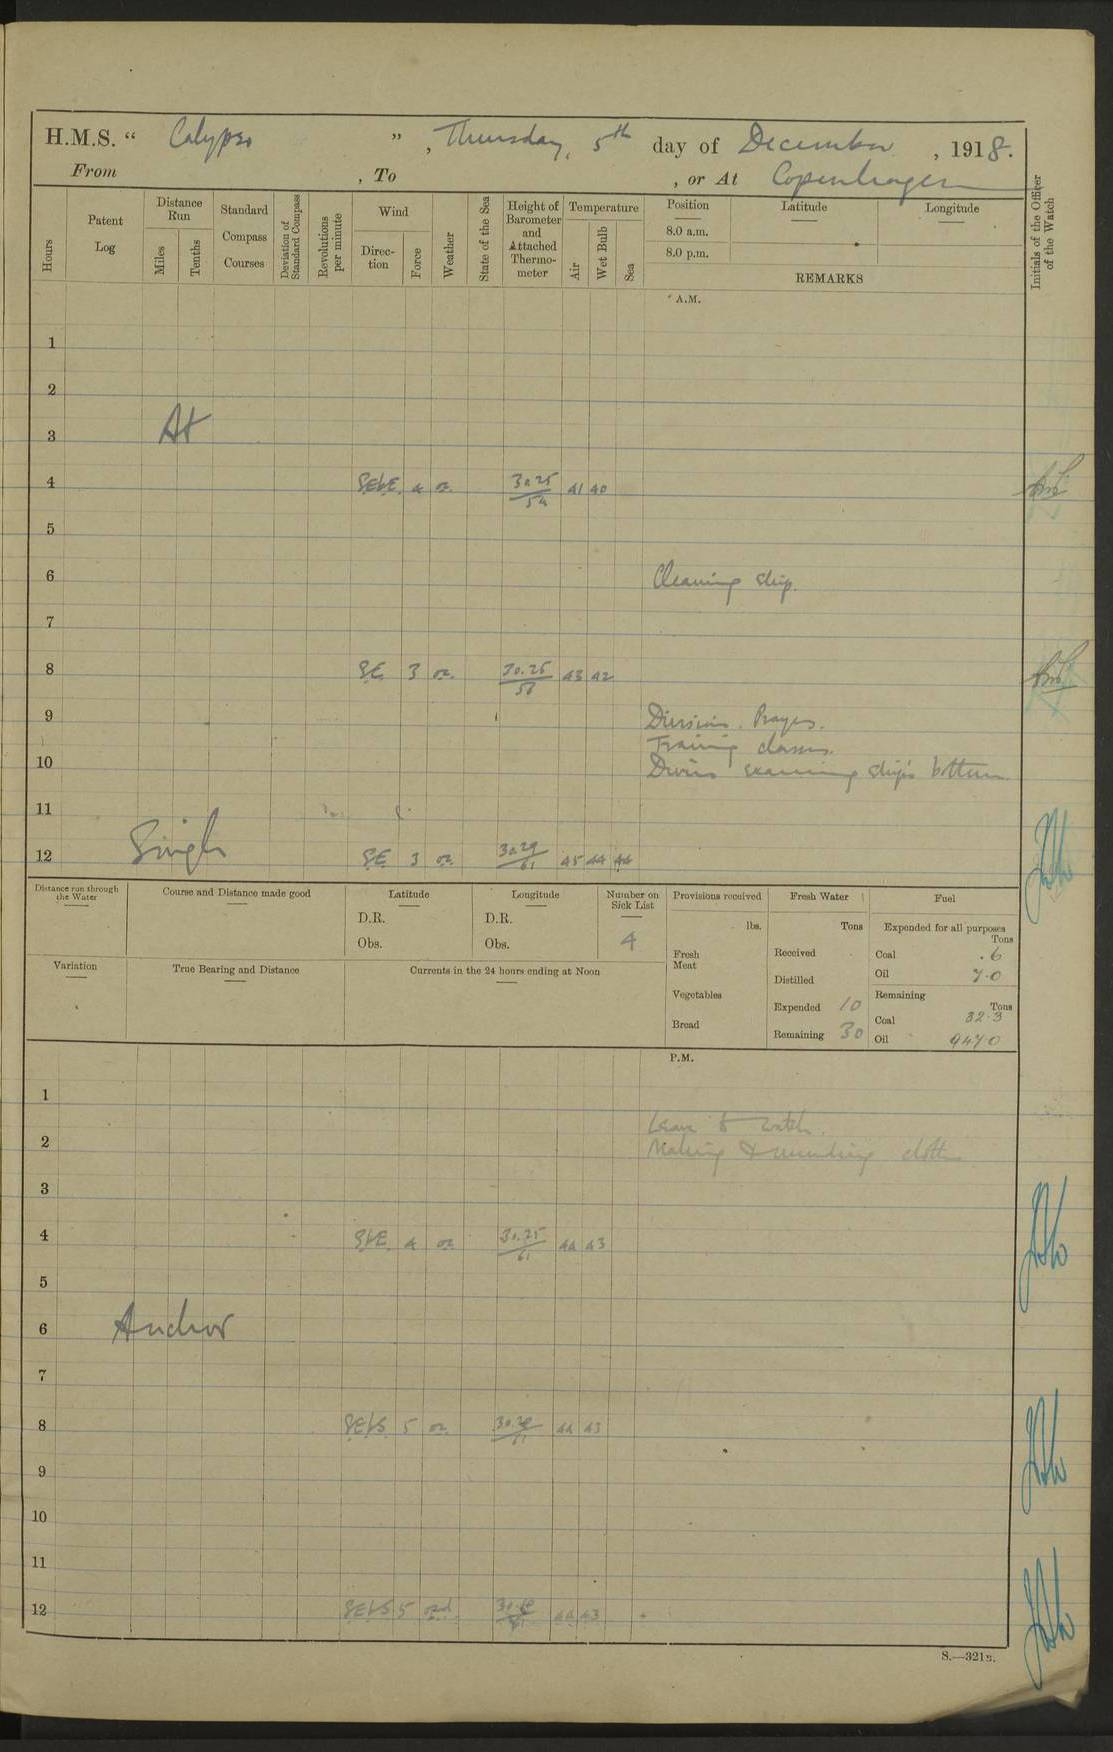 H.M.S. “ Calypso ” , Thursday, 5th day of December , 1918.
From , To , or At Copenhagen
Hours
Patent Log
Distance Run
Miles
Tenths
Standard Compass Courses
Deviation of Standard Compass
Revolutions per minute
Wind
Direction
Force
Weather
State of the Sea
Height of Barometer and Attached Thermometer
Temperature
Air
Wet Bulb
Sea
Position
8.0 a.m.
8.0 p.m.
Latitude
Longitude
REMARKS
Initials of the Officer of the Watch
A.M.
1
2
3 At
4 SEbE 4 oz. 30.25/54 41 40
5
6 Cleaning ship.
7
8 SE 3 oz. 30.25/ 43 42
9 Division. Prayers.
Training classes.
10 Divers examining ship's bottom
11
12 Single SE 3 oz 30.29/61 45 44 44
Distance run through the Water
Course and Distance made good
Latitude
D.R.
Obs.
Longitude
D.R.
Obs.
Number on Sick List
4
Provisions received
lbs.
Fresh Meat
Vegetables
Bread
Fresh Water
Tons
Received
Distilled
Expended 10
Remaining 30
Fuel
Expended for all purposes
Tons
Coal .6
Oil 7.0
Remaining
Tons
Coal 32.3
Oil 9470
Variation
True Bearing and Distance
Currents in the 24 hours ending at Noon
P.M.
1
Leave to watch.
2 Making & mending clothes
3
4 SbE 4 oz 30.25/61 44 43
5
6 Anchor
7
8 SEbS 5 oz 44 43
9
10
11
12 SEbS 5 44 43
S.—321B.